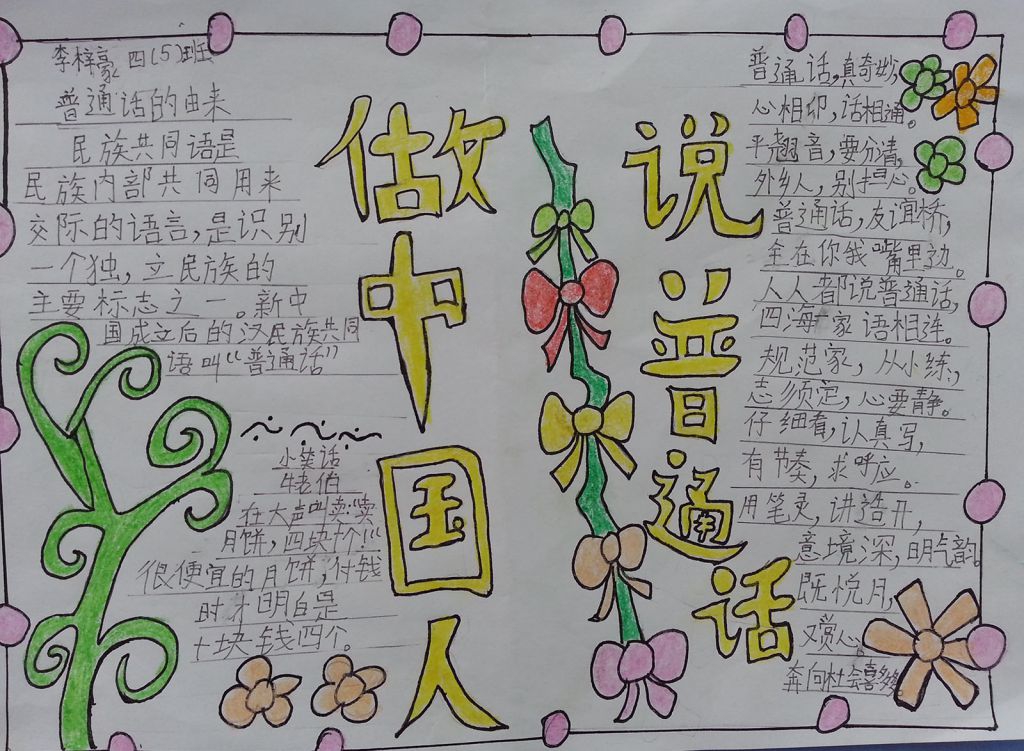 李梓豪 四(5)班
普通话的由来
民族共同语是
民族内部共同用来
交际的语言,是识别
一个独,立民族的
主要标志之一。新中
国成立后的汉民族共同
语叫“普通话”
小笑话
牛老伯
在大声叫卖
月饼,四块十个!“
很便宜的月饼,付钱
时才明白是
十块钱四个。
做中国人
说普通话
普通话,真奇妙,
心相印,话相通。
平翘音,要分清,
外乡人,别担心。
普通话,友谊桥,
全在你我嘴里边。
人人都说普通话,
四海一家语相连。
规范家,从小练,
志须定,心要静。
仔细看,认真写,
有节奏,求呼应。
用笔灵,讲造开,
意境深,明气韵。
既悦月,
又赏心。
奔向社会喜